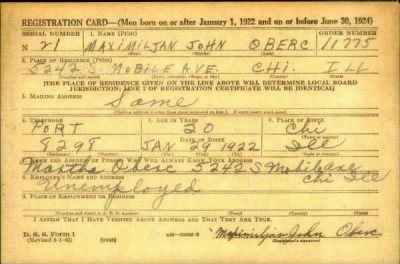 REGISTRATION CARD—(Men born on or after January 1, 1922 and on or before June 30, 1924)
SERIAL NUMBER 1. NAME (Print) ORDER NUMBER
N 21 MAXIMILJAN JOHN OBERC 11775
(First) (Middle) (Last)
2. PLACE OF RESIDENCE (Print)
5242 S. MOBILE AVE. CHI. ILL
(Number and street) (Town, township, village, or city) (County) (State)
[THE PLACE OF RESIDENCE GIVEN ON THE LINE ABOVE WILL DETERMINE LOCAL BOARD
JURISDICTION; LINE 2 OF REGISTRATION CERTIFICATE WILL BE IDENTICAL]
3. MAILING ADDRESS
Same
4. TELEPHONE 5. AGE IN YEARS 6. PLACE OF BIRTH
PORT 20 Chi
DATE OF BIRTH
9298 JAN 29 1922 Ill
7. NAME AND ADDRESS OF PERSON WHO WILL ALWAYS KNOW YOUR ADDRESS
Martha Oberc 5242 S Mobile Ave
Chi Ill
8. EMPLOYER'S NAME AND ADDRESS
Unemployed
9. PLACE OF EMPLOYMENT OR BUSINESS
(Number and street or R. F. D. number) (Town) (County) (State)
I AFFIRM THAT I HAVE VERIFIED ABOVE ANSWERS AND THAT THEY ARE TRUE.
D. S. S. Form 1
(over) Maximiljan John Oberc
(Registrant's signature)